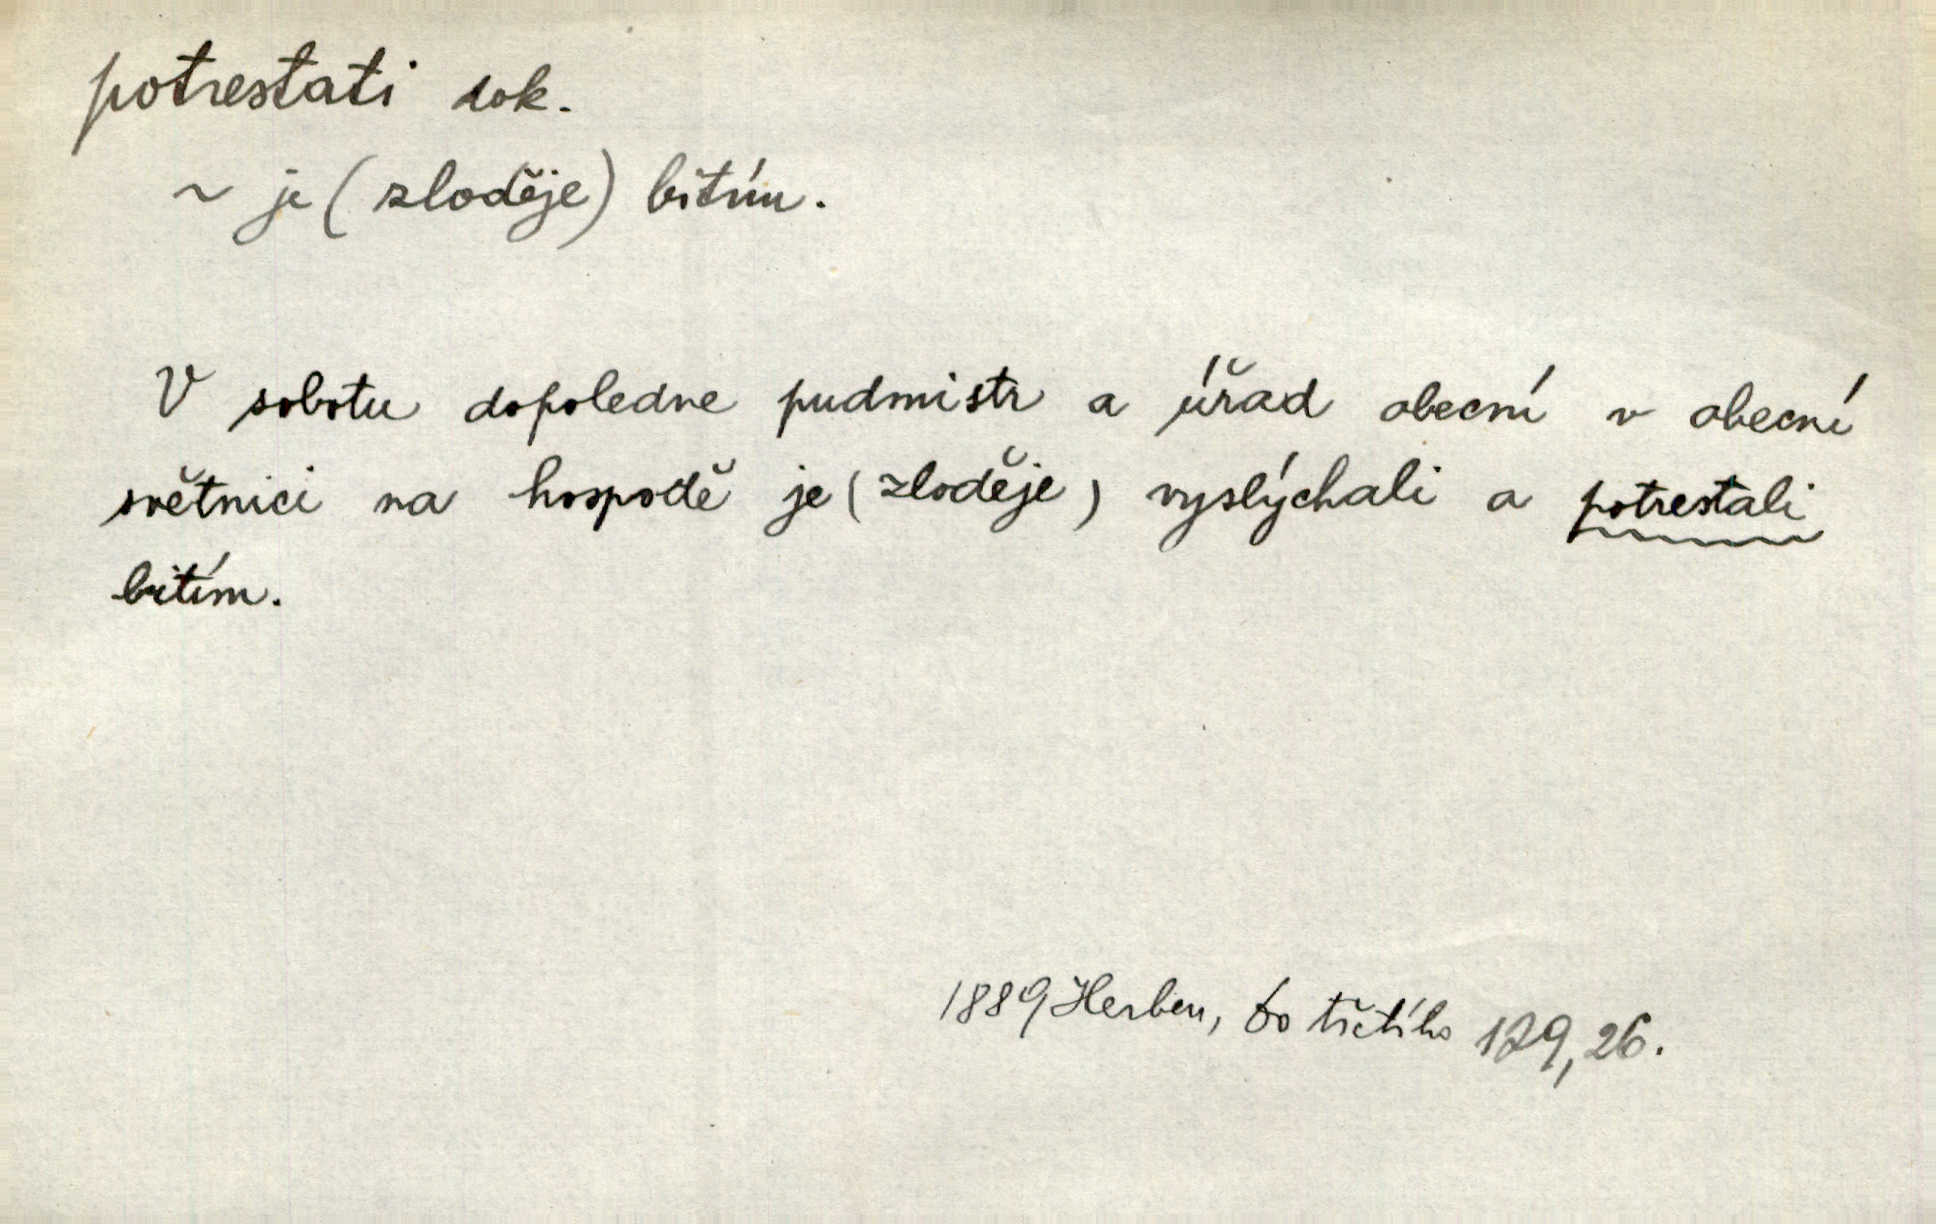 potrestati dok.
~ je (zloděje) bitím.
V sobotu dopoledne pudmistr a úřad obecní v obecní
světnici na hospodě je (zloděje) vyslýchali a potrestali
bitím.
1889 Herben, Do třetího 129, 26.